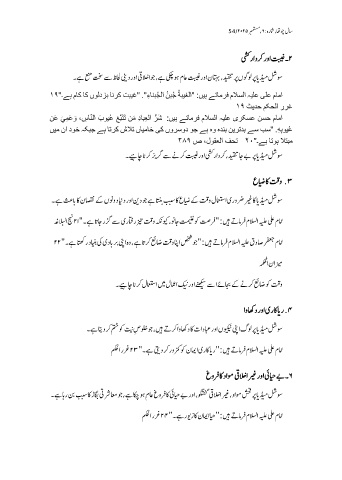 سال چوتھا، شمارہ: ۹، ستمبر ۲۰۲۵/54
۲۔ غیبت اور کردار کشی
سوشل میڈیا پر لوگوں پر تنقید، بہتان اور غیبت عام ہو چکی ہے، جو اخلاقی اور دینی لحاظ سے سخت منع ہے۔
امام علی علیہ السلام فرماتے ہیں: "الغیبۃ جُہدُ الجُبناءِ". "غیبت کرنا بزدلوں کا کام ہے۔"۱۹
غرر الحکم حدیث ۱۹
امام حسن عسکری علیہ السلام فرماتے ہیں: شرُّ العِباد مَن تَتَبَّع عُیوبَ النّاس، وَعَمِیَ عَن
عُیوبِہِ. "سب سے بدترین بندہ وہ ہے جو دوسروں کی خامیاں تلاش کرتا ہے جبکہ خود ان میں
مبتلا ہوتا ہے۔"۲۰ تحف العقول، ص ۳۸۹
سوشل میڈیا پر بے جا تنقید، کردار کشی اور غیبت کرنے سے گریز کرنا چاہیے۔
۳۔ وقت کا ضیاع
سوشل میڈیا کا غیر ضروری استعمال وقت کے ضیاع کا سبب بنتا ہے جو دین اور دنیا دونوں کے نقصان کا باعث ہے۔
امام علی علیہ السلام فرماتے ہیں: "فرصت کو غنیمت جانو، کیونکہ وقت تیز رفتاری سے گزر جاتا ہے۔"۲۱ نہج البلاغہ
امام جعفر صادق علیہ السلام فرماتے ہیں: "جو شخص اپنا وقت ضائع کرتا ہے، وہ اپنی بربادی کی بنیاد رکھتا ہے۔"۲۲
میزان الحکمہ
وقت کو ضائع کرنے کے بجائے اسے سیکھنے اور نیک اعمال میں استعمال کرنا چاہیے۔
۴۔ ریاکاری اور دکھاوا
سوشل میڈیا پر لوگ اپنی نیکیوں اور عبادات کا دکھاوا کرتے ہیں، جو خلوص نیت کو ختم کر دیتا ہے۔
امام علی علیہ السلام فرماتے ہیں: "ریاکاری ایمان کو کمزور کر دیتی ہے۔"۲۳ غرر الحکم
۶۔ بے حیائی اور غیر اخلاقی مواد کا فروغ
سوشل میڈیا پر فحش مواد، غیر اخلاقی گفتگو، اور بے حیائی کا فروغ عام ہو چکا ہے، جو معاشرتی بگاڑ کا سبب بن رہا ہے۔
امام علی علیہ السلام فرماتے ہیں: "حیا ایمان کا زیور ہے۔"۲۴ غرر الحکم